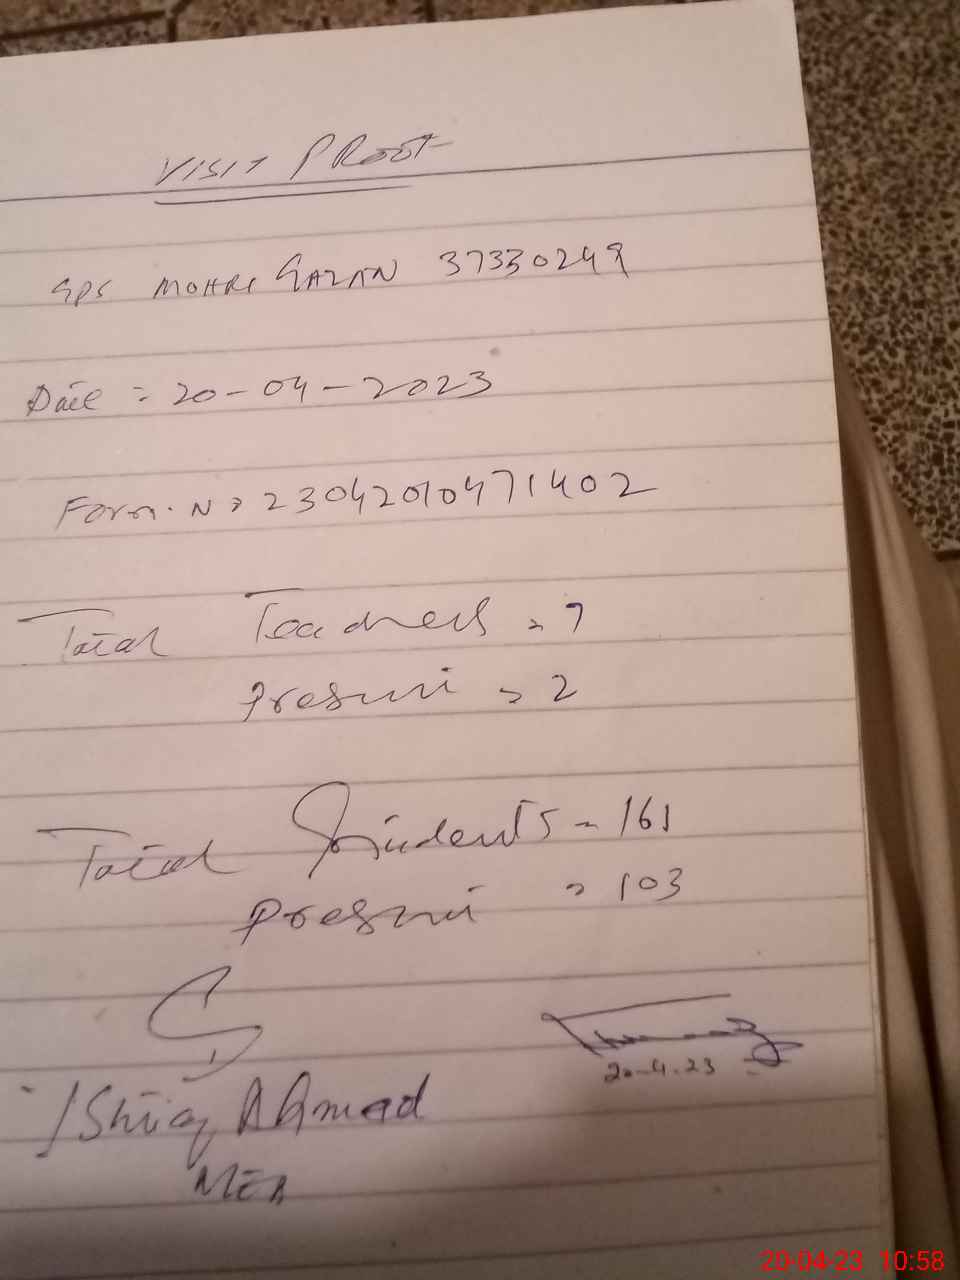 VISIT PROOF
GPS MOHRI GAZAN 37330249
Date = 20-04-2023
Form. No 23042010471402
Total Teachers = 7
Present = 2
Total Students = 161
Present = 103
20-4-23
Ishtiaq Ahmad
MEA
20-04-23 10:58